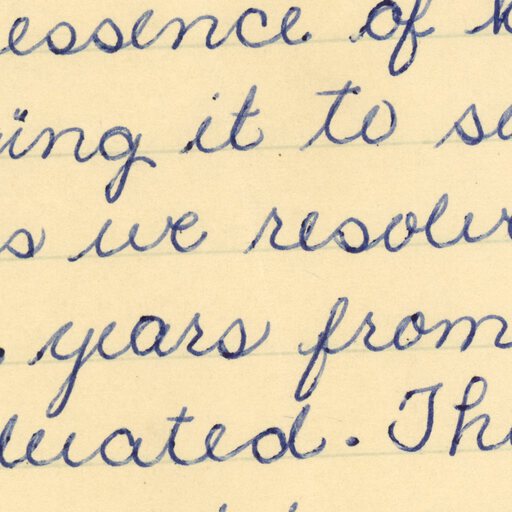 essence of
ing it to se
s we resolv
years from
uated. The